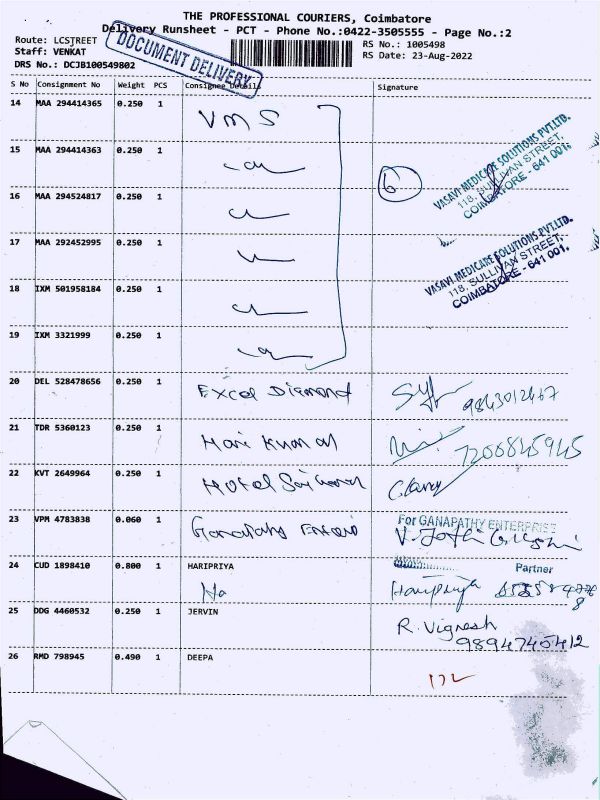 THE PROFESSIONAL COURIERS, Coimbatore
Delivery Runsheet - PCT - Phone No.:0422-3505555 - Page No.:2
Route: LCSTREET
Staff: VENKAT
DRS No.: DCJB100549802
DOCUMENT DELIVERY
RS No.: 1005498
RS Date: 23-Aug-2022
S No Consignment No Weight PCS Consignee Details Signature
14 MAA 294414365 0.250 1 VMS
15 MAA 294414363 0.250 1
VASAVI MEDICARE SOLUTIONS PVT.LTD.
118, SULLIVAN STREET,
COIMBATORE - 641 001.
6
16 MAA 294524817 0.250 1
17 MAA 292452995 0.250 1
VASAVI MEDICARE SOLUTIONS PVT.LTD.
118, SULLIVAN STREET,
COIMBATORE - 641 001.
18 IXM 501958184 0.250 1
19 IXM 3321999 0.250 1
20 DEL 528478656 0.250 1 Excel Diamond 9843012467
21 TDR 5360123 0.250 1 Hari Kumar 7200845945
22 KVT 2649964 0.250 1 Hotel
23 VPM 4783838 0.060 1 Ganapathy
For GANAPATHY ENTERPRISE
Partner
24 CUD 1898410 0.800 1 HARIPRIYA
Ha Haripriya
25 DDG 4460532 0.250 1 JERVIN
R. Vignesh
9894740412
26 RMD 798945 0.490 1 DEEPA